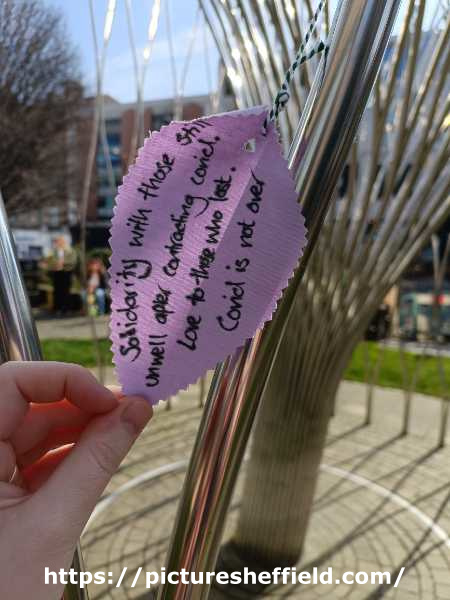 Solidarity with those still
unwell after contracting covid.
Love to those who lost.
Covid is not over
https://picturesheffield.com/